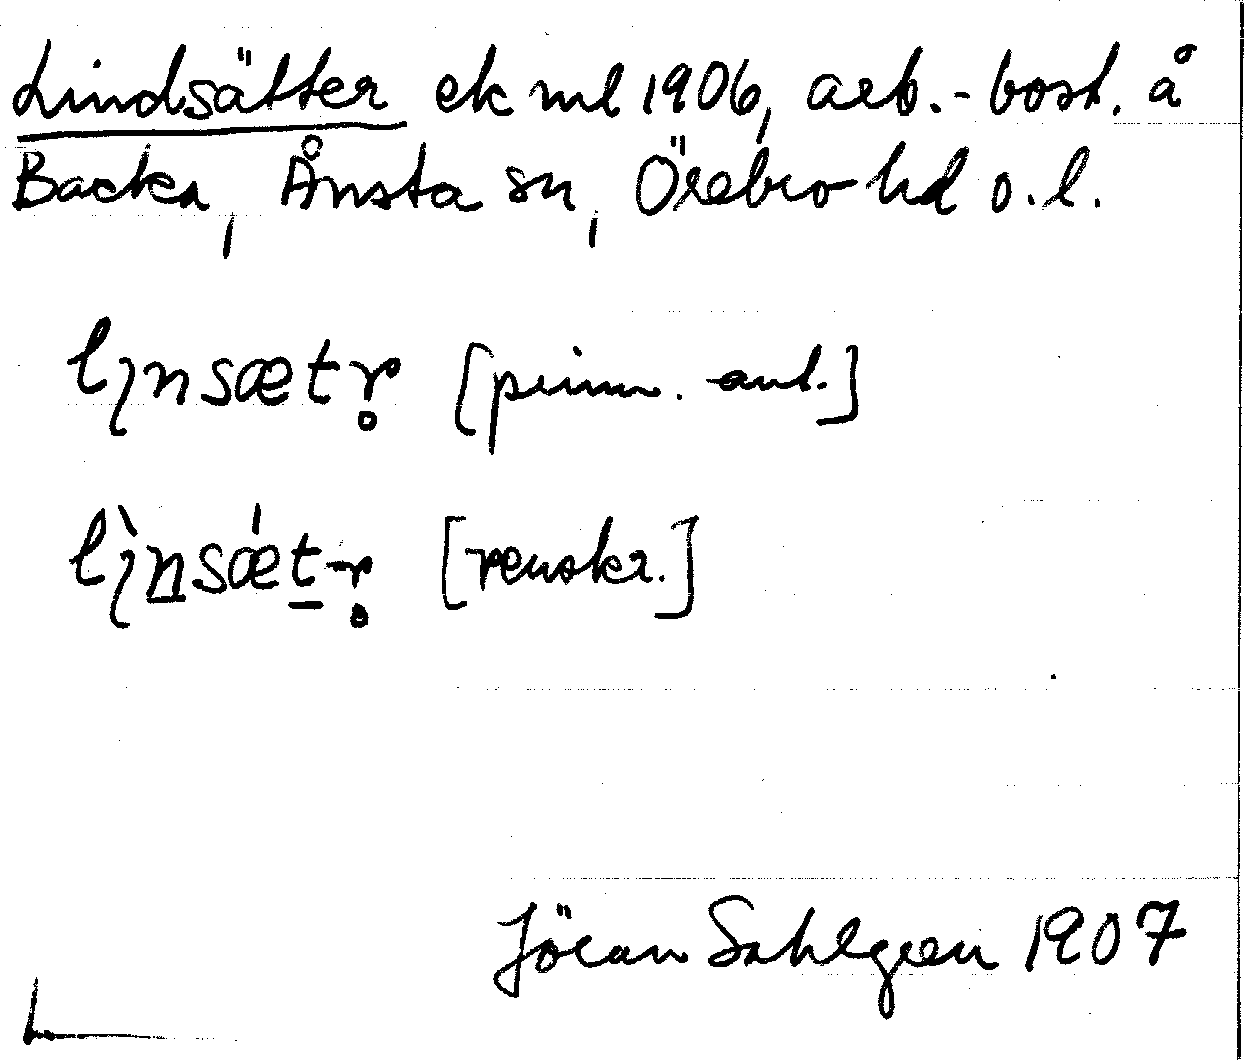 Lindsätter ek ml 1906, arb.-bost. å
Backa, Ånsta sn, Örebro hd o.l.
lı̨nsætr̥ [prim. ant.]
lı̨̀nsǽt-r̥ [renskr.]
Jöran Sahlgren 1907